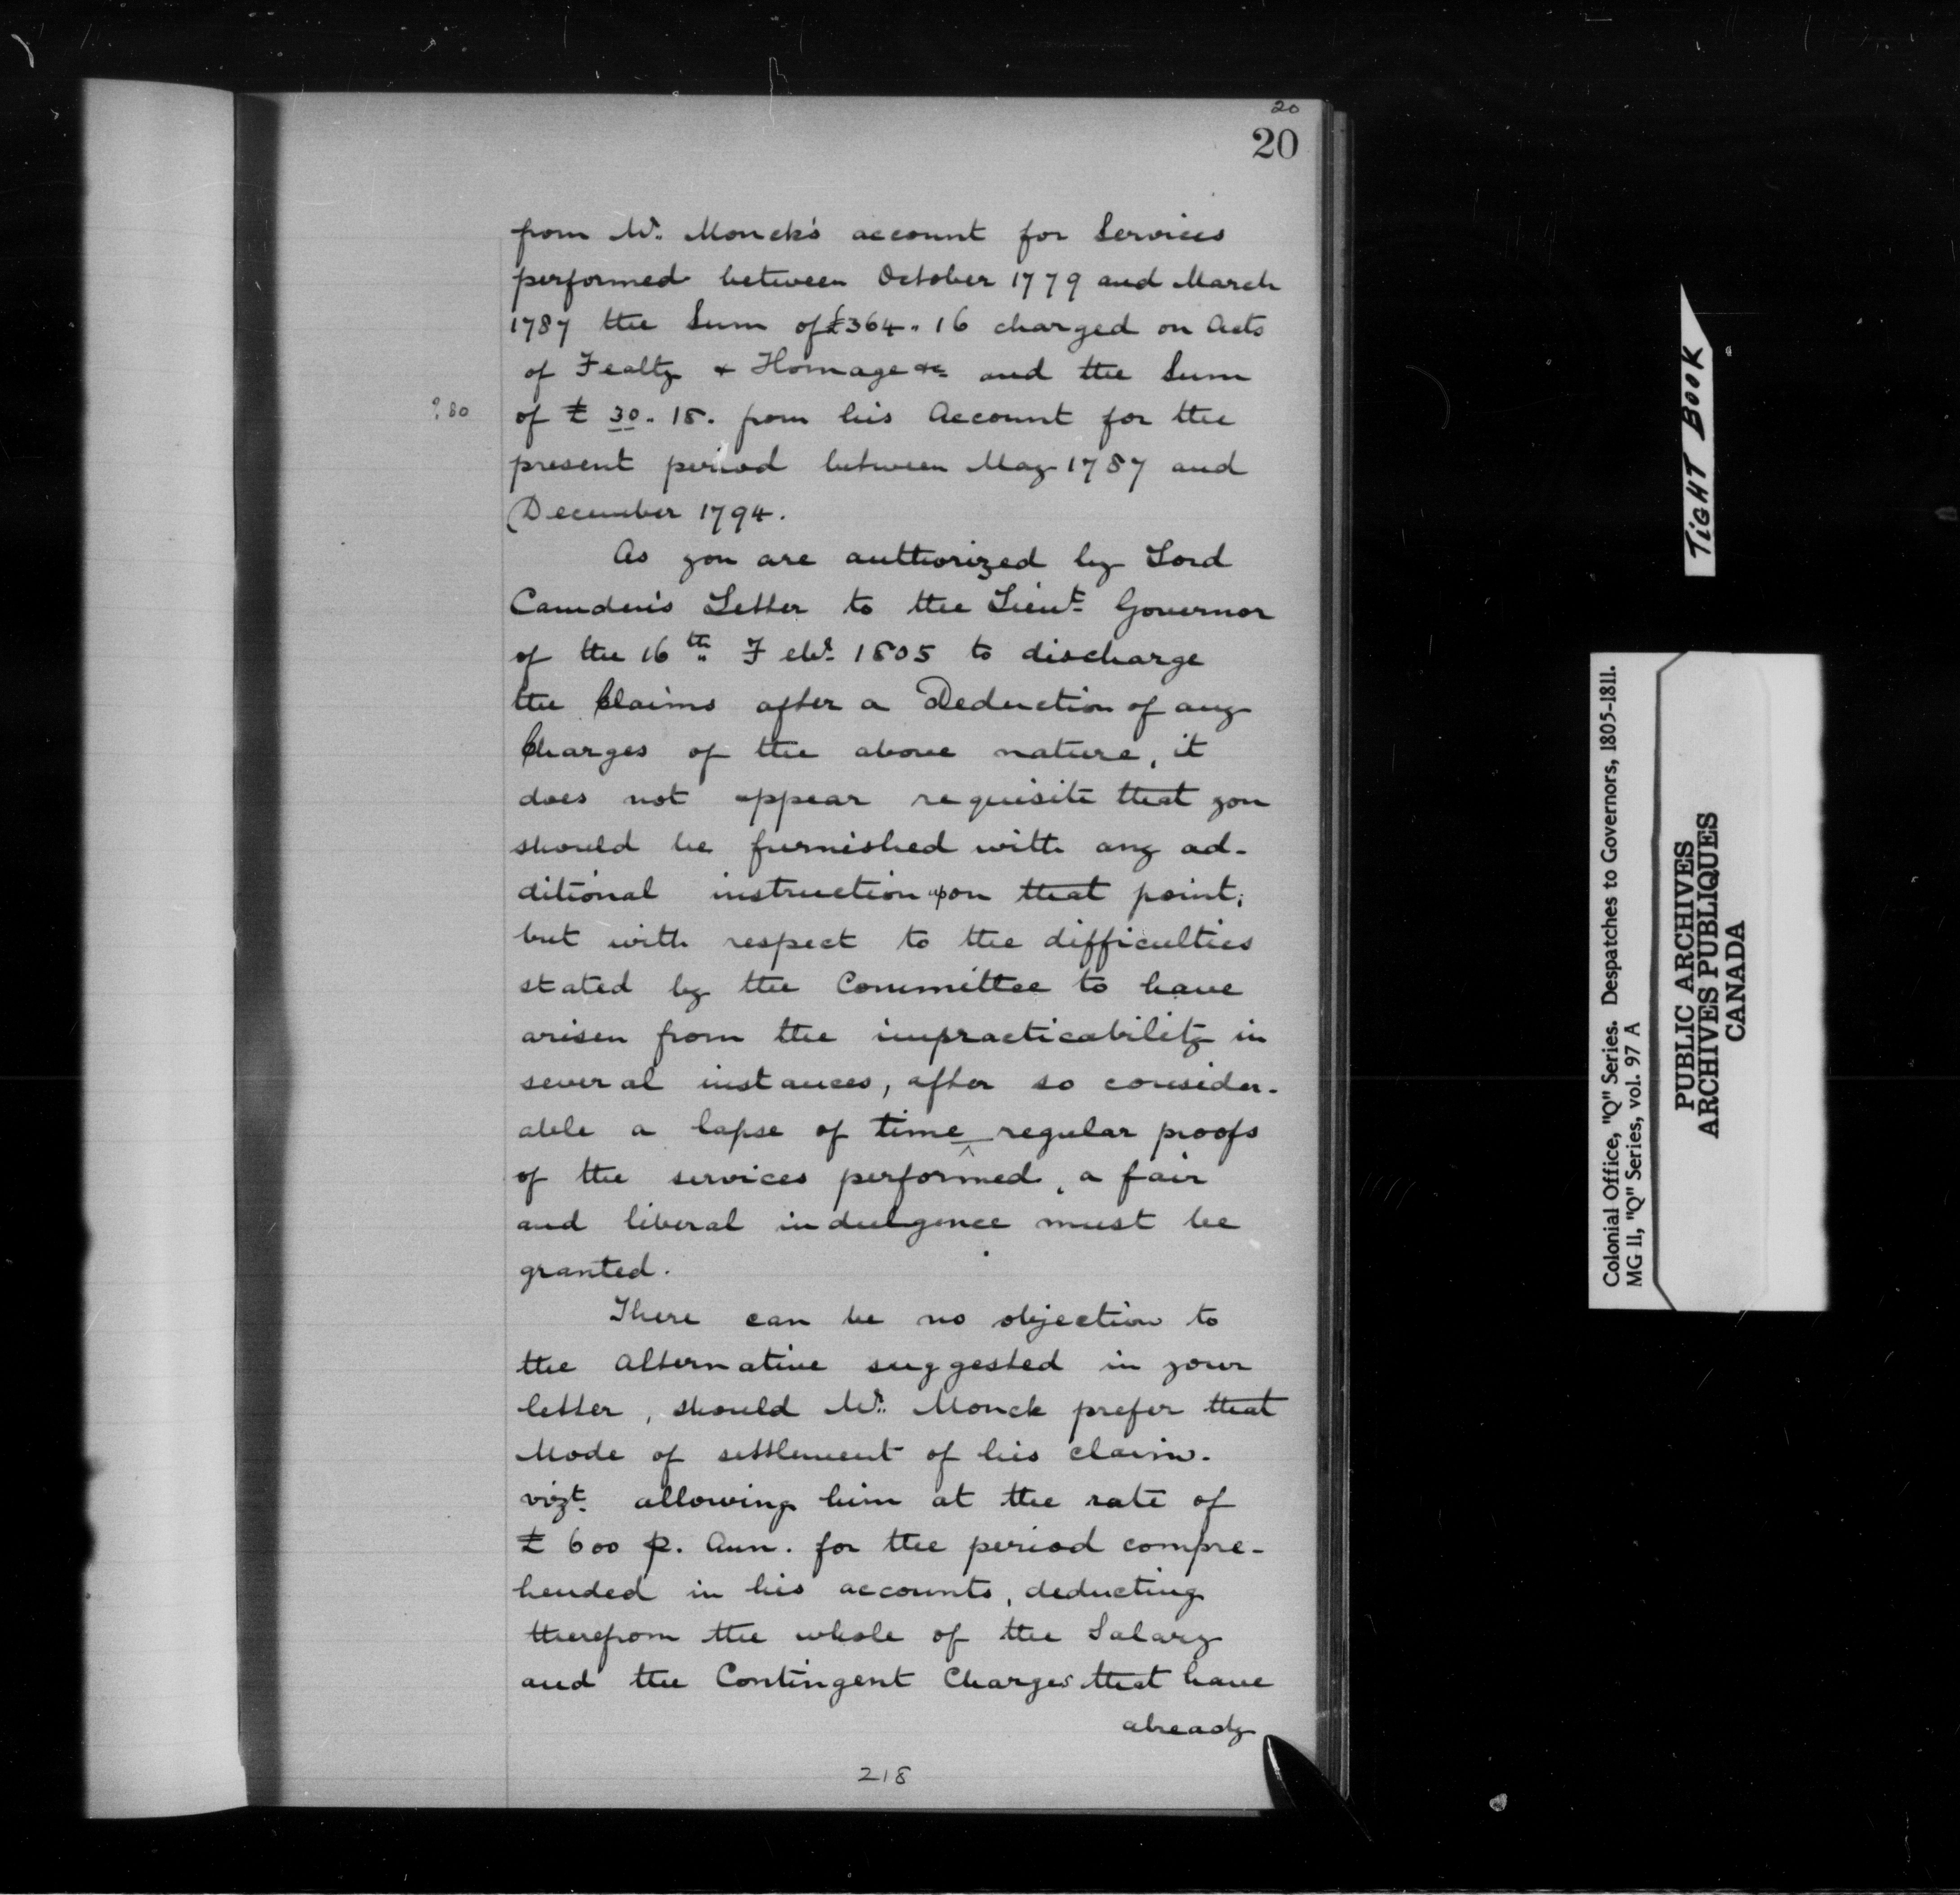 20
20
from Mr. Monck's account for Services
performed between October 1779 and March
1787 the Sum of £364.16 charged on Acts
of Fealty & Homage &c and the Sum
? 80
of £ 30. 18. from his Account for the
present period between May 1787 and
December 1794.
As you are authorized by Lord
Camden's Letter to the Lieut. Governor
of the 16th Feby. 1805 to discharge
the Claims after a Deduction of any
Charges of the above nature, it
does not appear requisite that you
should be furnished with any ad-
ditional instruction upon that point;
but with respect to the difficulties
stated by the Committee to have
arisen from the impracticability in
several instances, after so consider-
able a lapse of time ^ regular proofs
of the services performed, a fair
and liberal indulgence must be
granted.
There can be no objection to
the alternative suggested in your
letter, should Mr. Monck prefer that
Mode of settlement of his claim.
vizt. allowing him at the rate of
£ 600 p. Ann. for the period compre-
hended in his accounts, deducting
therefrom the whole of the Salary
and the Contingent Charges that have
already
218
TIGHT BOOK
Colonial Office, "Q" Series. Despatches to Governors, 1805-1811.
MG 11, "Q" Series, vol. 97 A
PUBLIC ARCHIVES
ARCHIVES PUBLIQUES
CANADA